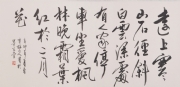 遠上寒
山石徑斜
白雲深處
有人家停
車坐愛楓
林晚霜葉
紅於二月
花